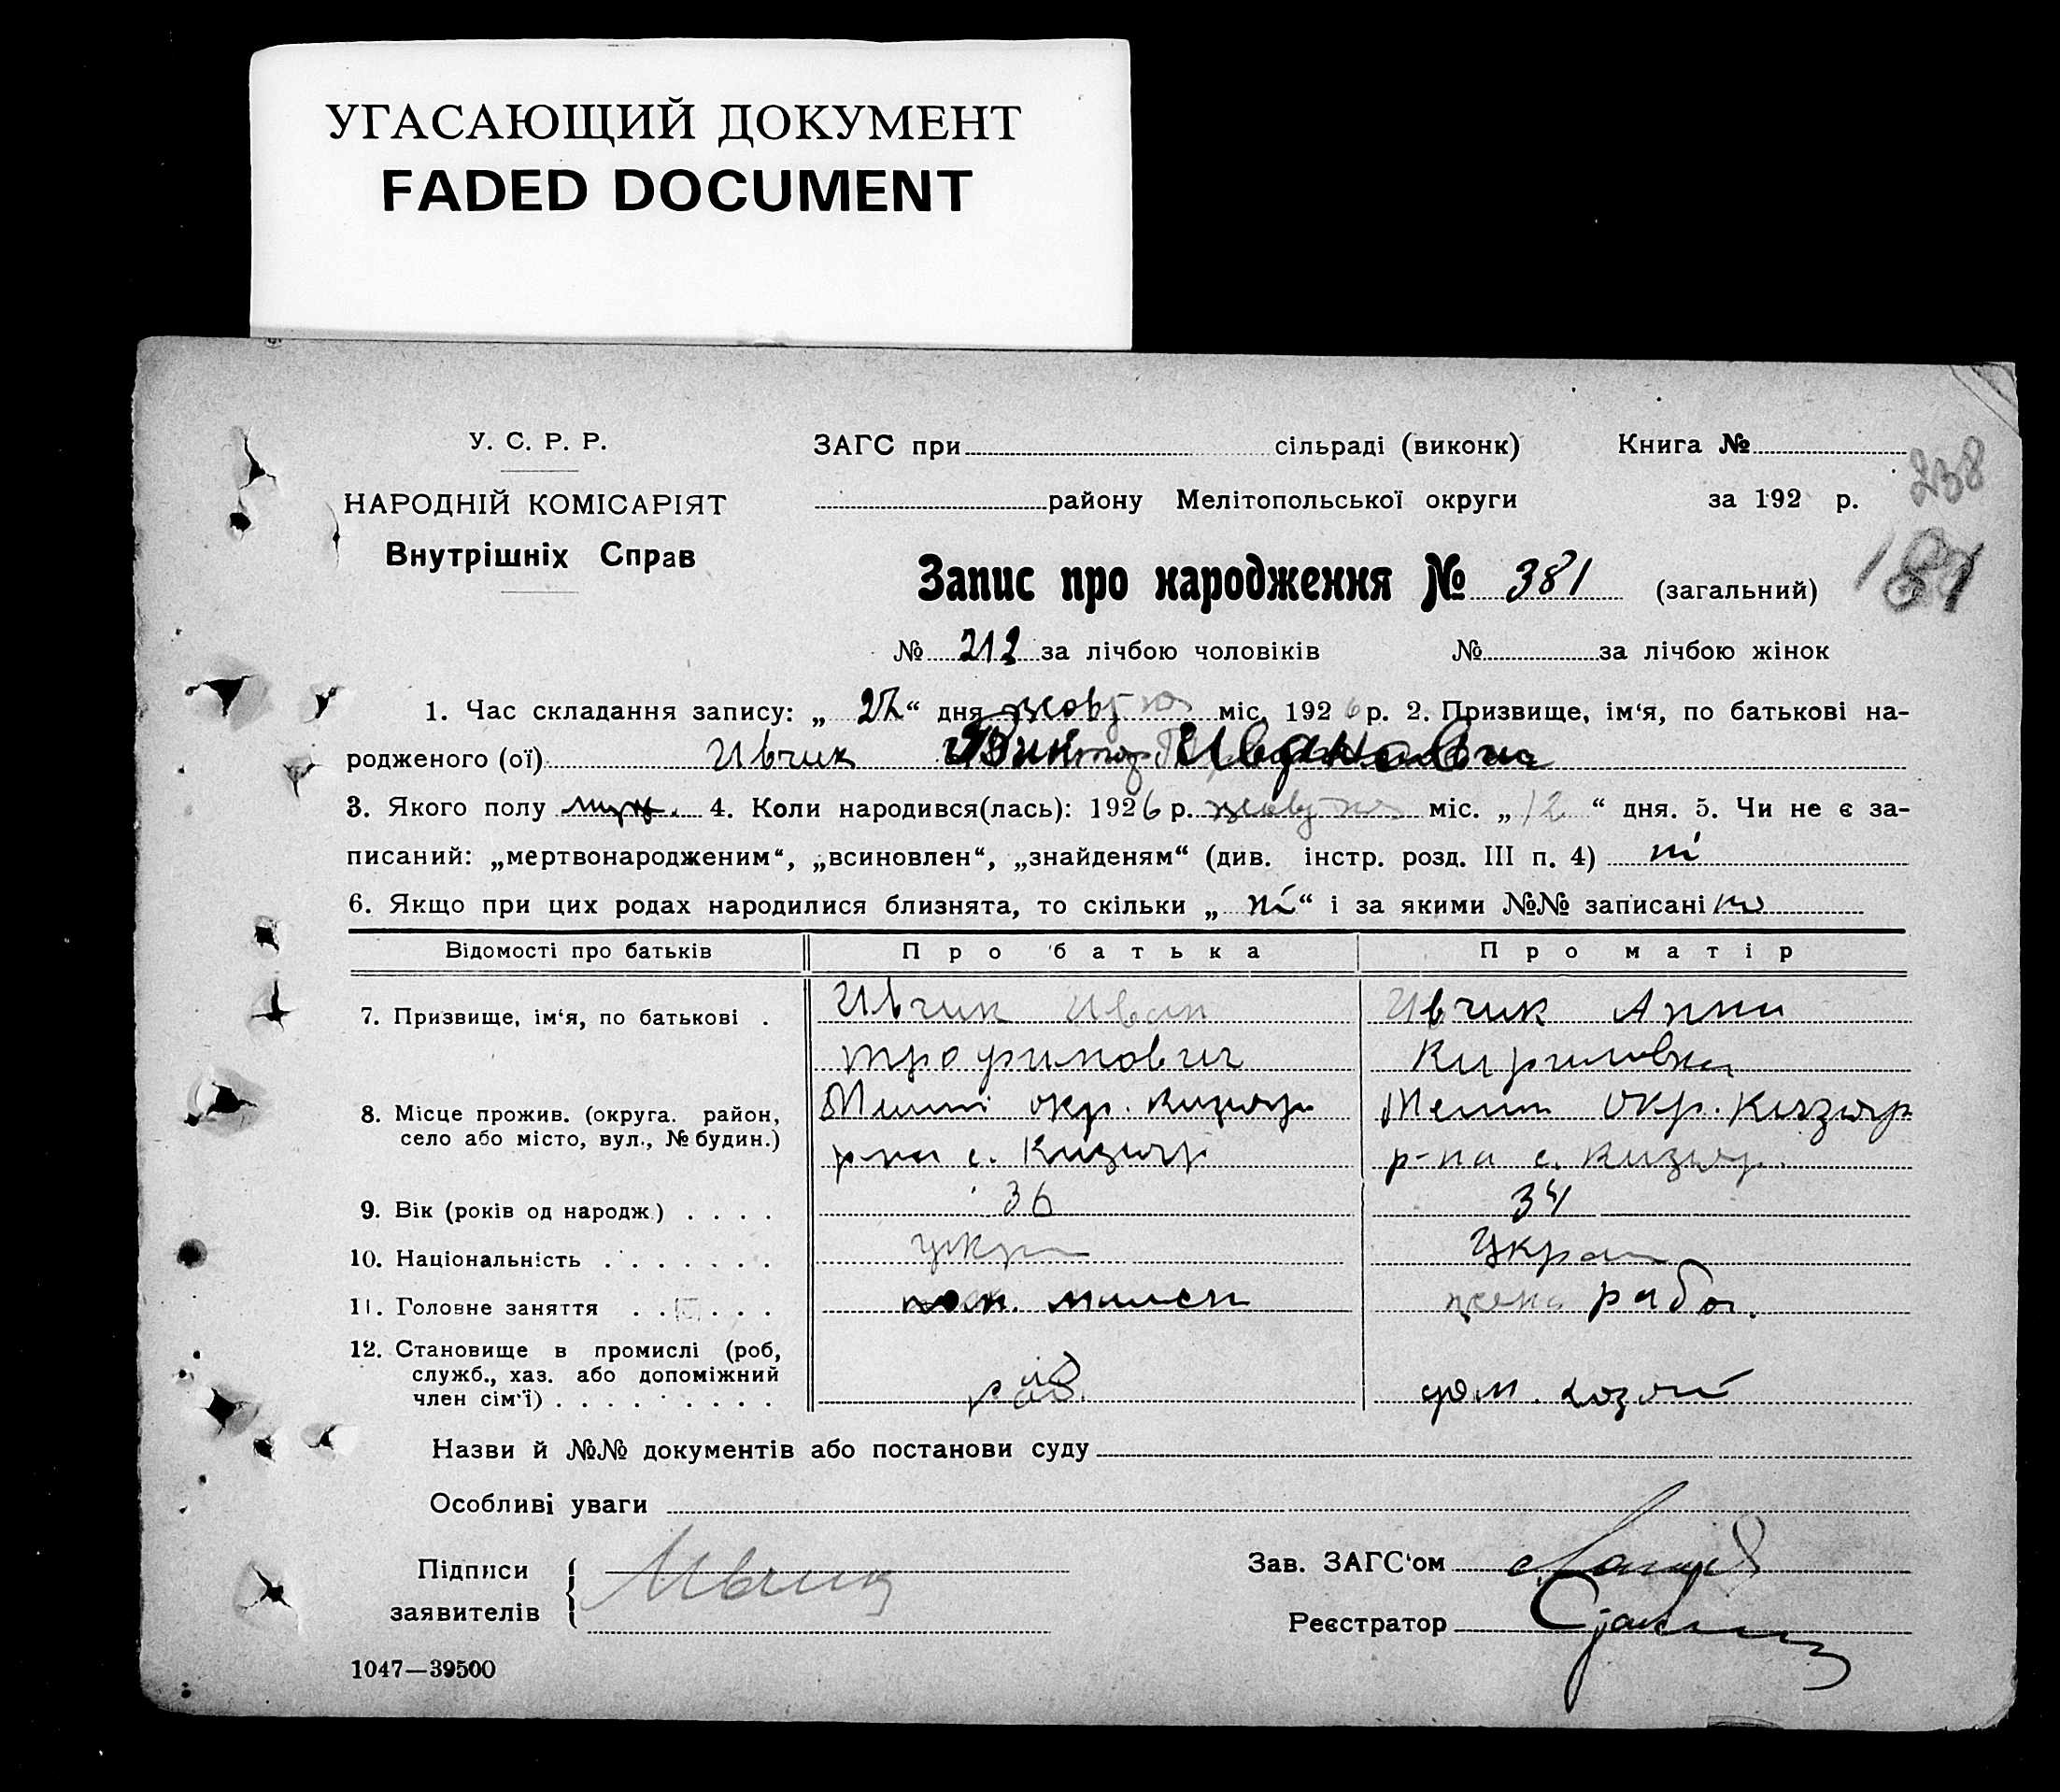 УГАСАЮЩИЙ ДОКУМЕНТ
FADED DOCUMENT
У. С. Р. Р.
ЗАГС при сільраді (виконк) Книга №
238
НАРОДНІЙ КОМІСАРІЯТ
району Мелітопольської округи за 192 р.
Внутрішніх Справ
Запис про народження № 381 (загальний)
№ 212 за лічбою чоловіків № за лічбою жінок
1. Час складання запису: „ “ дня міс. 1926 р. 2. Призвище, ім‘я, по батькові на-
родженого (ої) Ивчик Виктор
3. Якого полу 4. Коли народився(лась): 1926 р. міс. „12“ дня. 5. Чи не є за-
писаний: „мертвонародженим“, „всиновлен“, „знайденям“ (див. інстр. розд. III п. 4) ні
6. Якщо при цих родах народилися близнята, то скільки „ні“ і за якими №№ записані
Відомості про батьків Про батька Про матір
7. Призвище, ім‘я, по батькові . Ивчик Иван Ивчик Анна
трофимович Кириловна
8. Місце прожив. (округа. район, окр. Кизияр окр. Кизияр
село або місто, вул., № будин.) р-на с. Кизияр р-на с. Кизияр.
9. Вік (років од народж.) . . . . 36 34
10. Національність . . . . . . . укра Украи
11. Головне заняття . . . . . . жена рабоч.
12. Становище в промислі (роб,
служб., хаз. або допоміжний
член сім‘ї) . . . . . . . . . раб. дом. хозяй
Назви й №№ документів або постанови суду
Особливі уваги
Підписи
заявителів
Ивчик
Зав. ЗАГС‘ом
Реєстратор
1047—39500